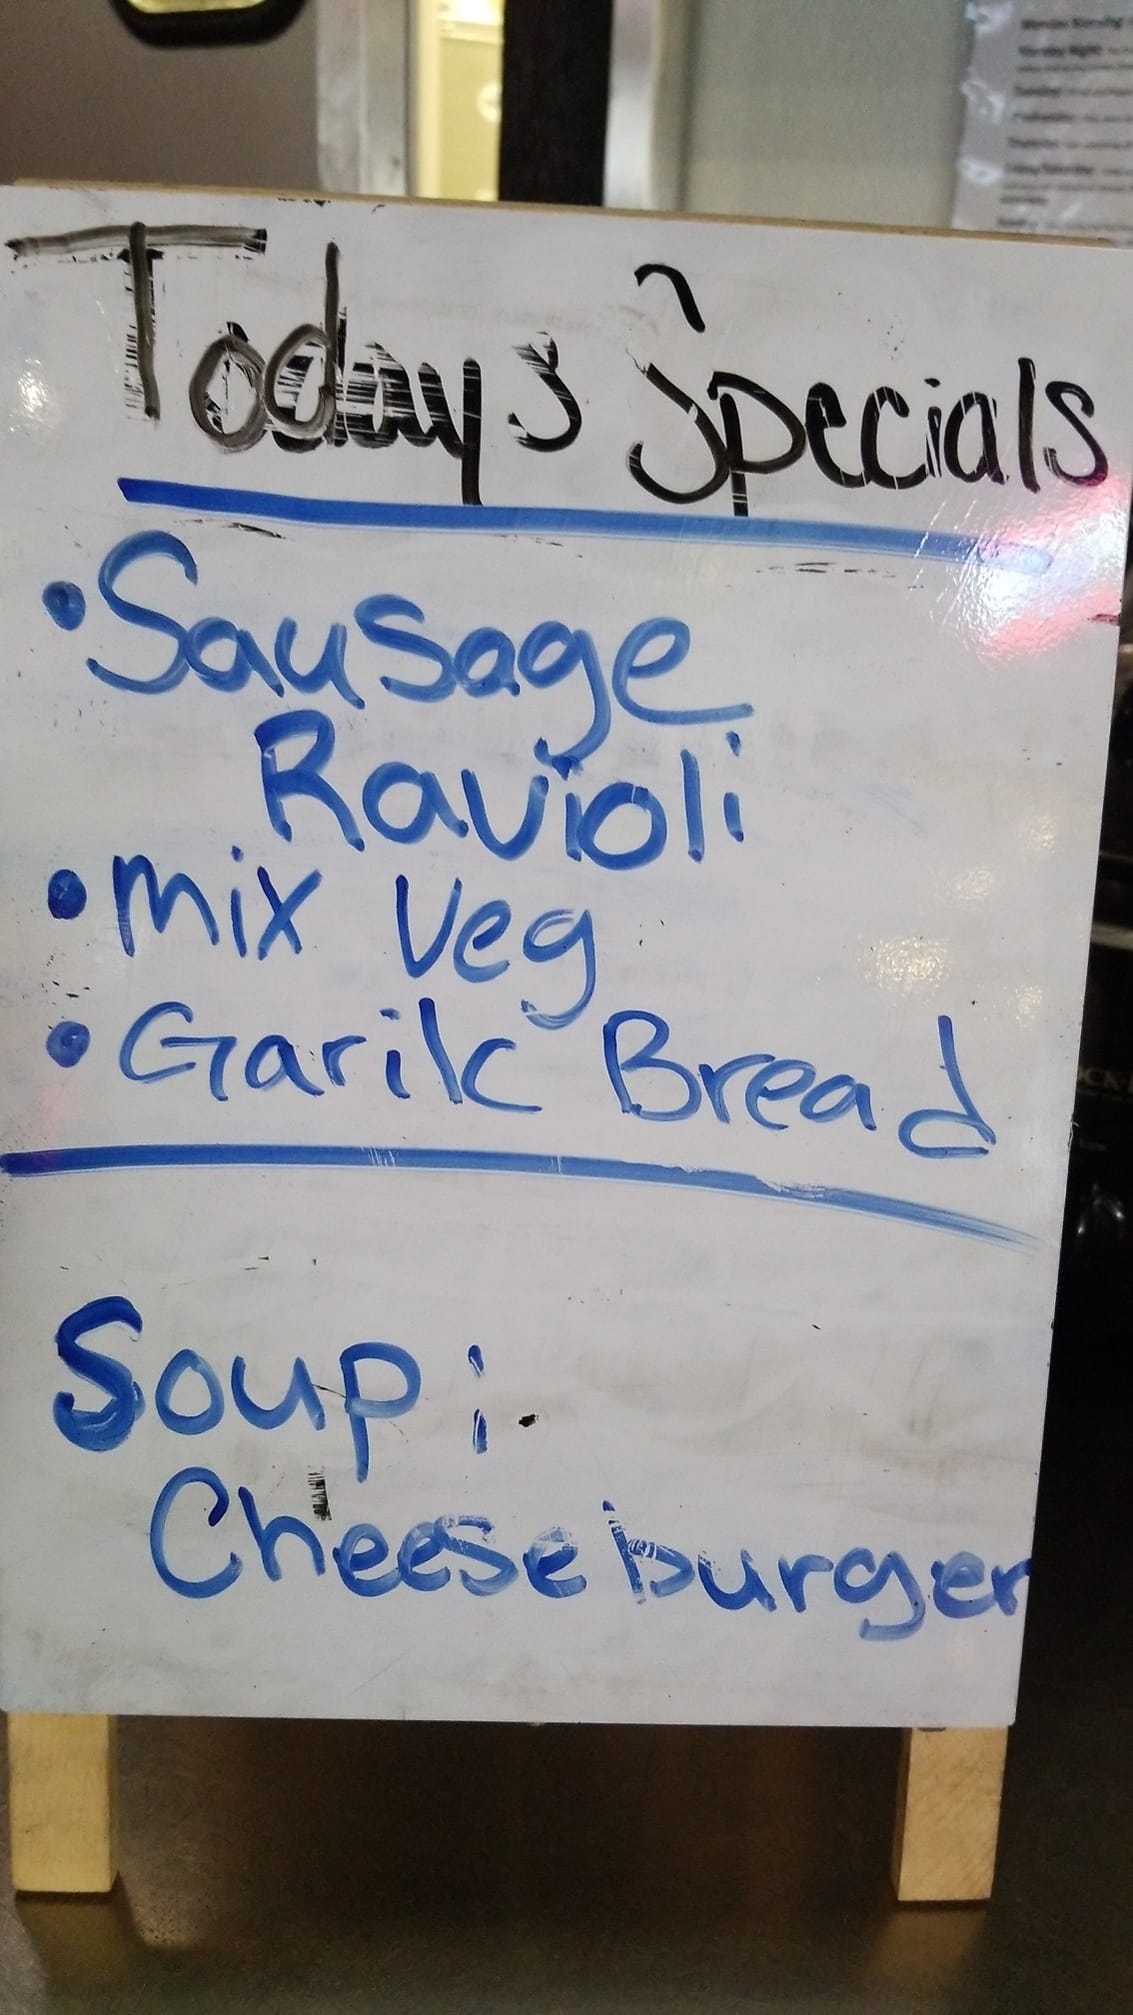 Todays Specials
• Sausage
Ravioli
• Mix Veg
• Garilc Bread
Soup:
Cheeseburger
Monday Night